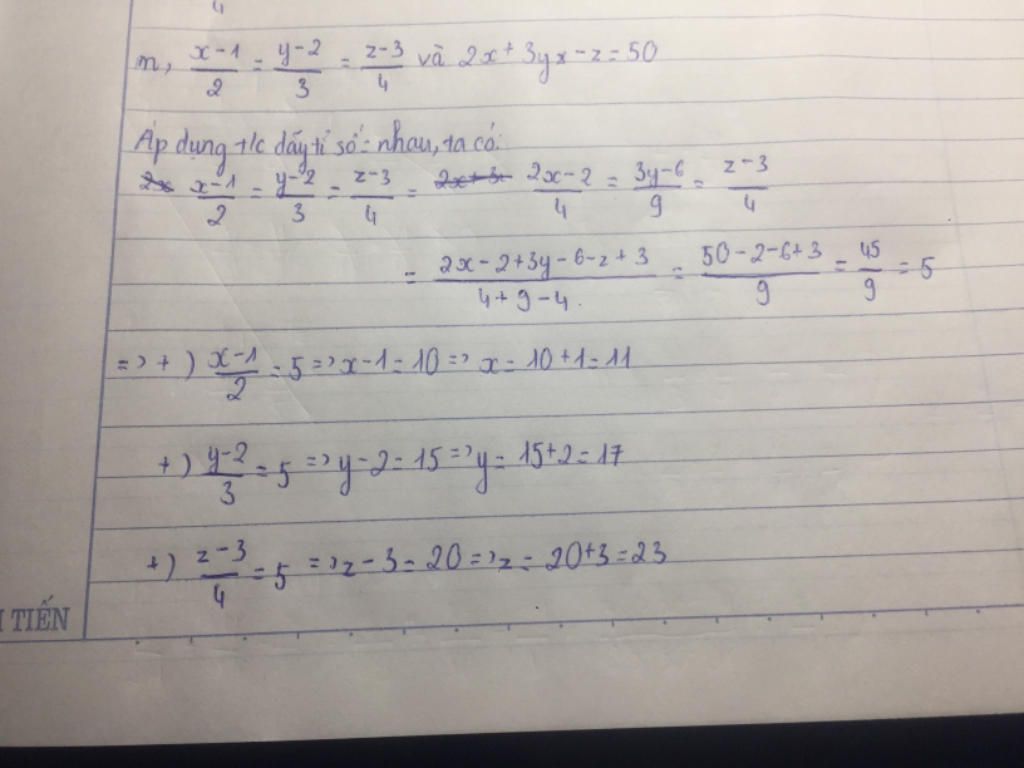 4
n, x-1/2 = y-2/3 = z-3/4 và 2x+3yx-z=50
Áp dụng t/c dãy tỉ số = nhau, ta có:
2x x-1/2 = y-2/3 = z-3/4 = 2x+3 2x-2/4 = 3y-6/9 = z-3/4
= 2x-2+3y-6-z+3/4+9-4. = 50-2-6+3/9 = 45/9 = 5
=> +) x-1/2 = 5 => x-1=10 => x=10+1=11
+) y-2/3 = 5 => y-2=15 => y=15+2=17
+) z-3/4 = 5 => z-3=20 => z=20+3=23
TIẾN